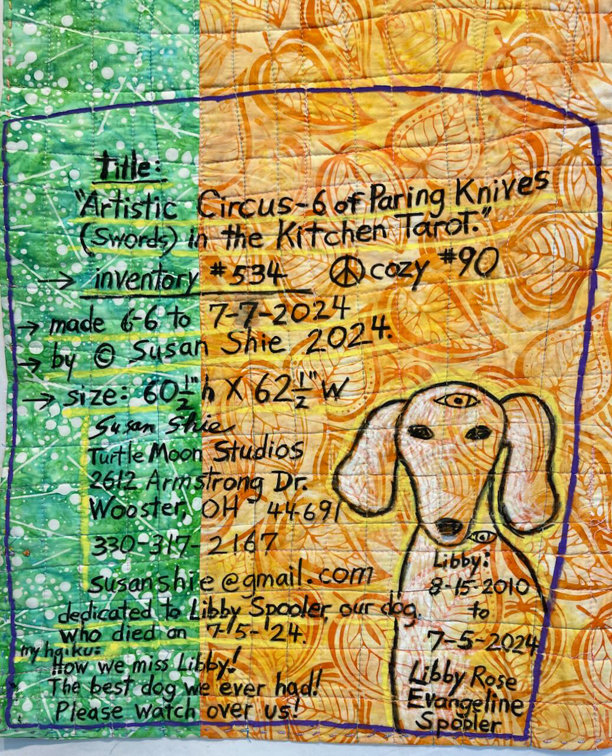 title:
"Artistic Circus-6 of Paring Knives
(Swords) in the Kitchen Tarot."
→ inventory #534 ☮ cozy #90
→ made 6-6 to 7-7-2024
→ by © Susan Shie 2024.
→ size: 60½"h X 62½"w
Susan Shie
Turtle Moon Studios
2612 Armstrong Dr.
Wooster, OH 44691
330-317-2167
susanshie@gmail.com
dedicated to Libby Spooler, our dog,
who died on 7-5-'24.
my haiku:
How we miss Libby!
The best dog we ever had!
Please watch over us!
Libby:
8-15-2010
to
7-5-2024
Libby Rose
Evangeline
Spooler